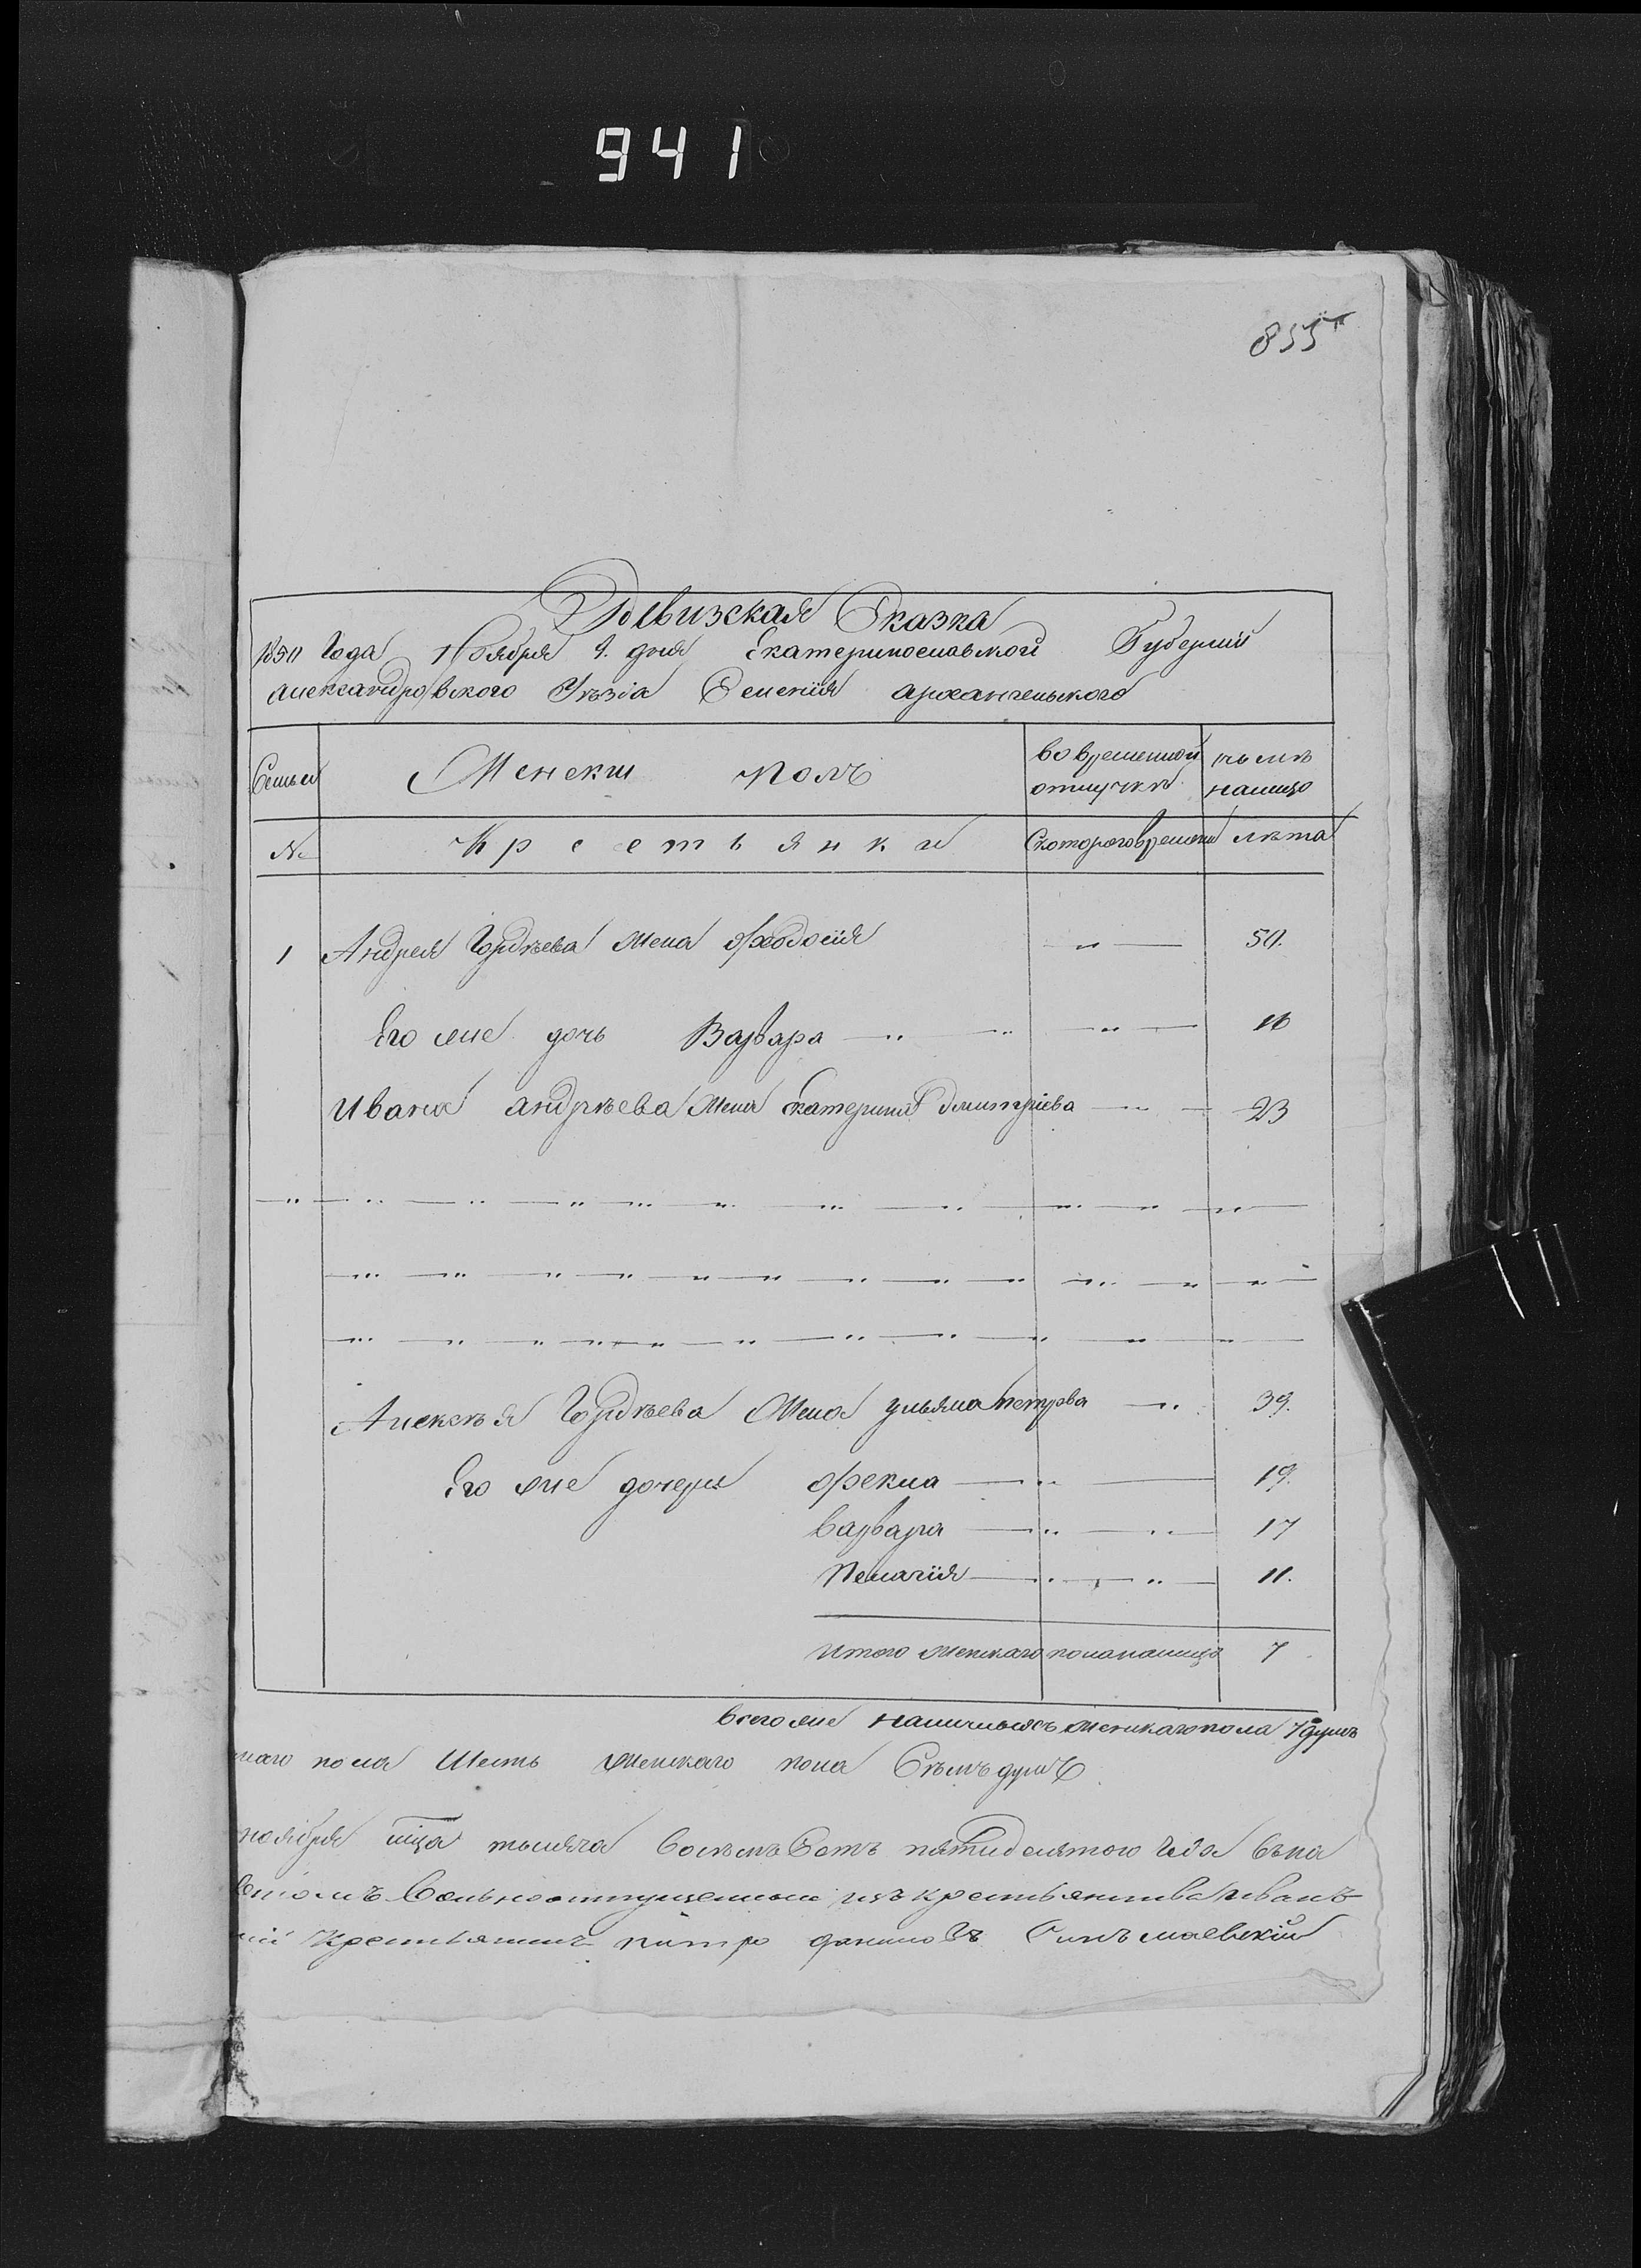 941
855
Ревизская Сказка
1850 Года Ноября 1. дня Екатеринославской Губернiи
Александровского Уезда Селенiя Архангельского
Семьи Женски полъ во временной отлучкѣ въ лѣ налицо
№ Крестьянки Скоторого времени лѣта
1 Андрея Гордѣева жена Феодосiя 50.
Его же дочь Варвара 16
Ивана Андрѣева жена Екатерина Дмитрiева 23
Алексѣя Гордѣева жена Ульяна Петрова 39.
Его же дочери Фекла 19.
Варвара 17
Пелагiя 11.
Итого женскаго пола налицо 7
Всего же наличныхъ женскаго пола 7 душъ
наго пола Шесть женскаго пола Сѣмъ душъ
ноября мца тысяча восѣмъ Сотъ пятидесятого Года
Вольноотпущенный изъ крестьянства Иванъ
Крестьянинъ